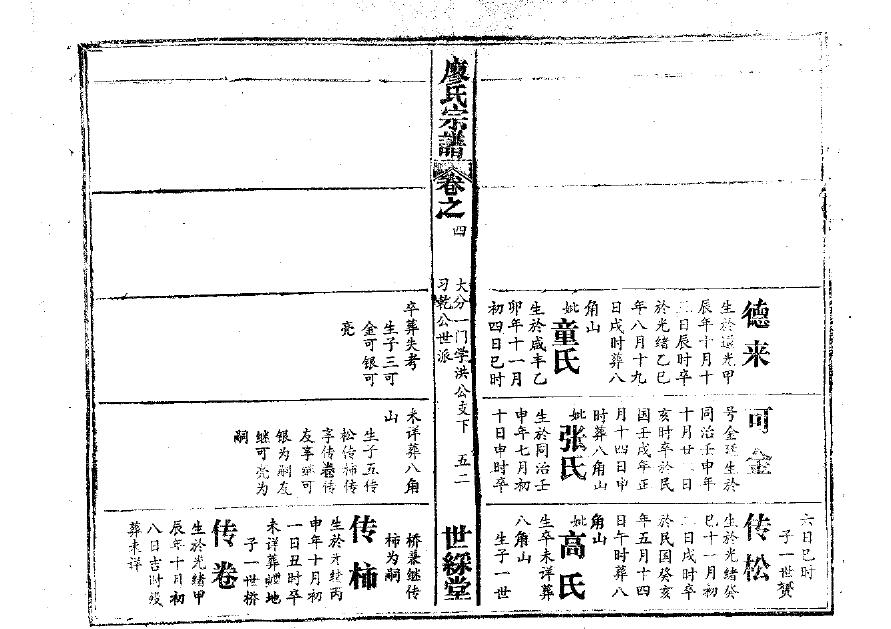 德来
生於道光甲
辰年十月十
三日辰时卒
於光绪乙巳
年八月十九
日戌时葬八
角山
妣童氏
生於咸丰乙
卯年十一月
初四日巳时
可金
号金廷生於
同治壬申年
十月廿二日
亥时卒於民
国壬戌年正
月十四日申
时葬八角山
妣张氏
生於同治壬
申年七月初
十日申时卒
六日巳时
子一世赟
传松
生於光绪癸
巳十一月初
二日戌时卒
於民国癸亥
年五月十四
日午时葬八
角山
妣高氏
生卒未详葬
八角山
生子一世
廖氏宗譜
卷之四
大分一门学洪公支下
习乾公世派
五二
世綵堂
卒葬失考
生子三可
金可银可
亮
未详葬八角
山
生子五传
松传柿传
字传卷传
友事继可
银为嗣友
继可亮为
嗣
桥兼继传
柿为嗣
传柿
生於光绪丙
申年十月初
一日丑时卒
未详葬地
子一世桥
传卷
生於光绪甲
辰年十月初
八日吉时殁
葬未详